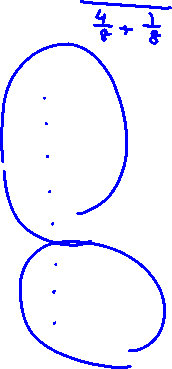 4/8 + 1/8